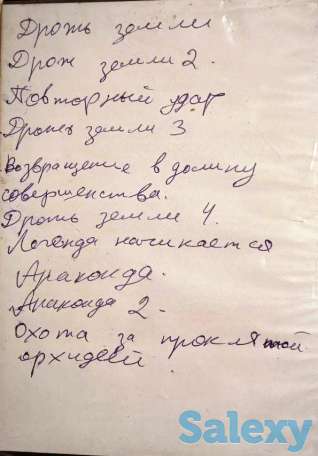 Дрожь земли
Дрож земли 2.
Повторный удар
Дрожь земли 3
Возвращение в долину
совершенства.
Дрожь земли 4.
Легенда начинается
Анаконда.
Анаконда 2.
Охота за проклятой
орхидеей.
Salexy